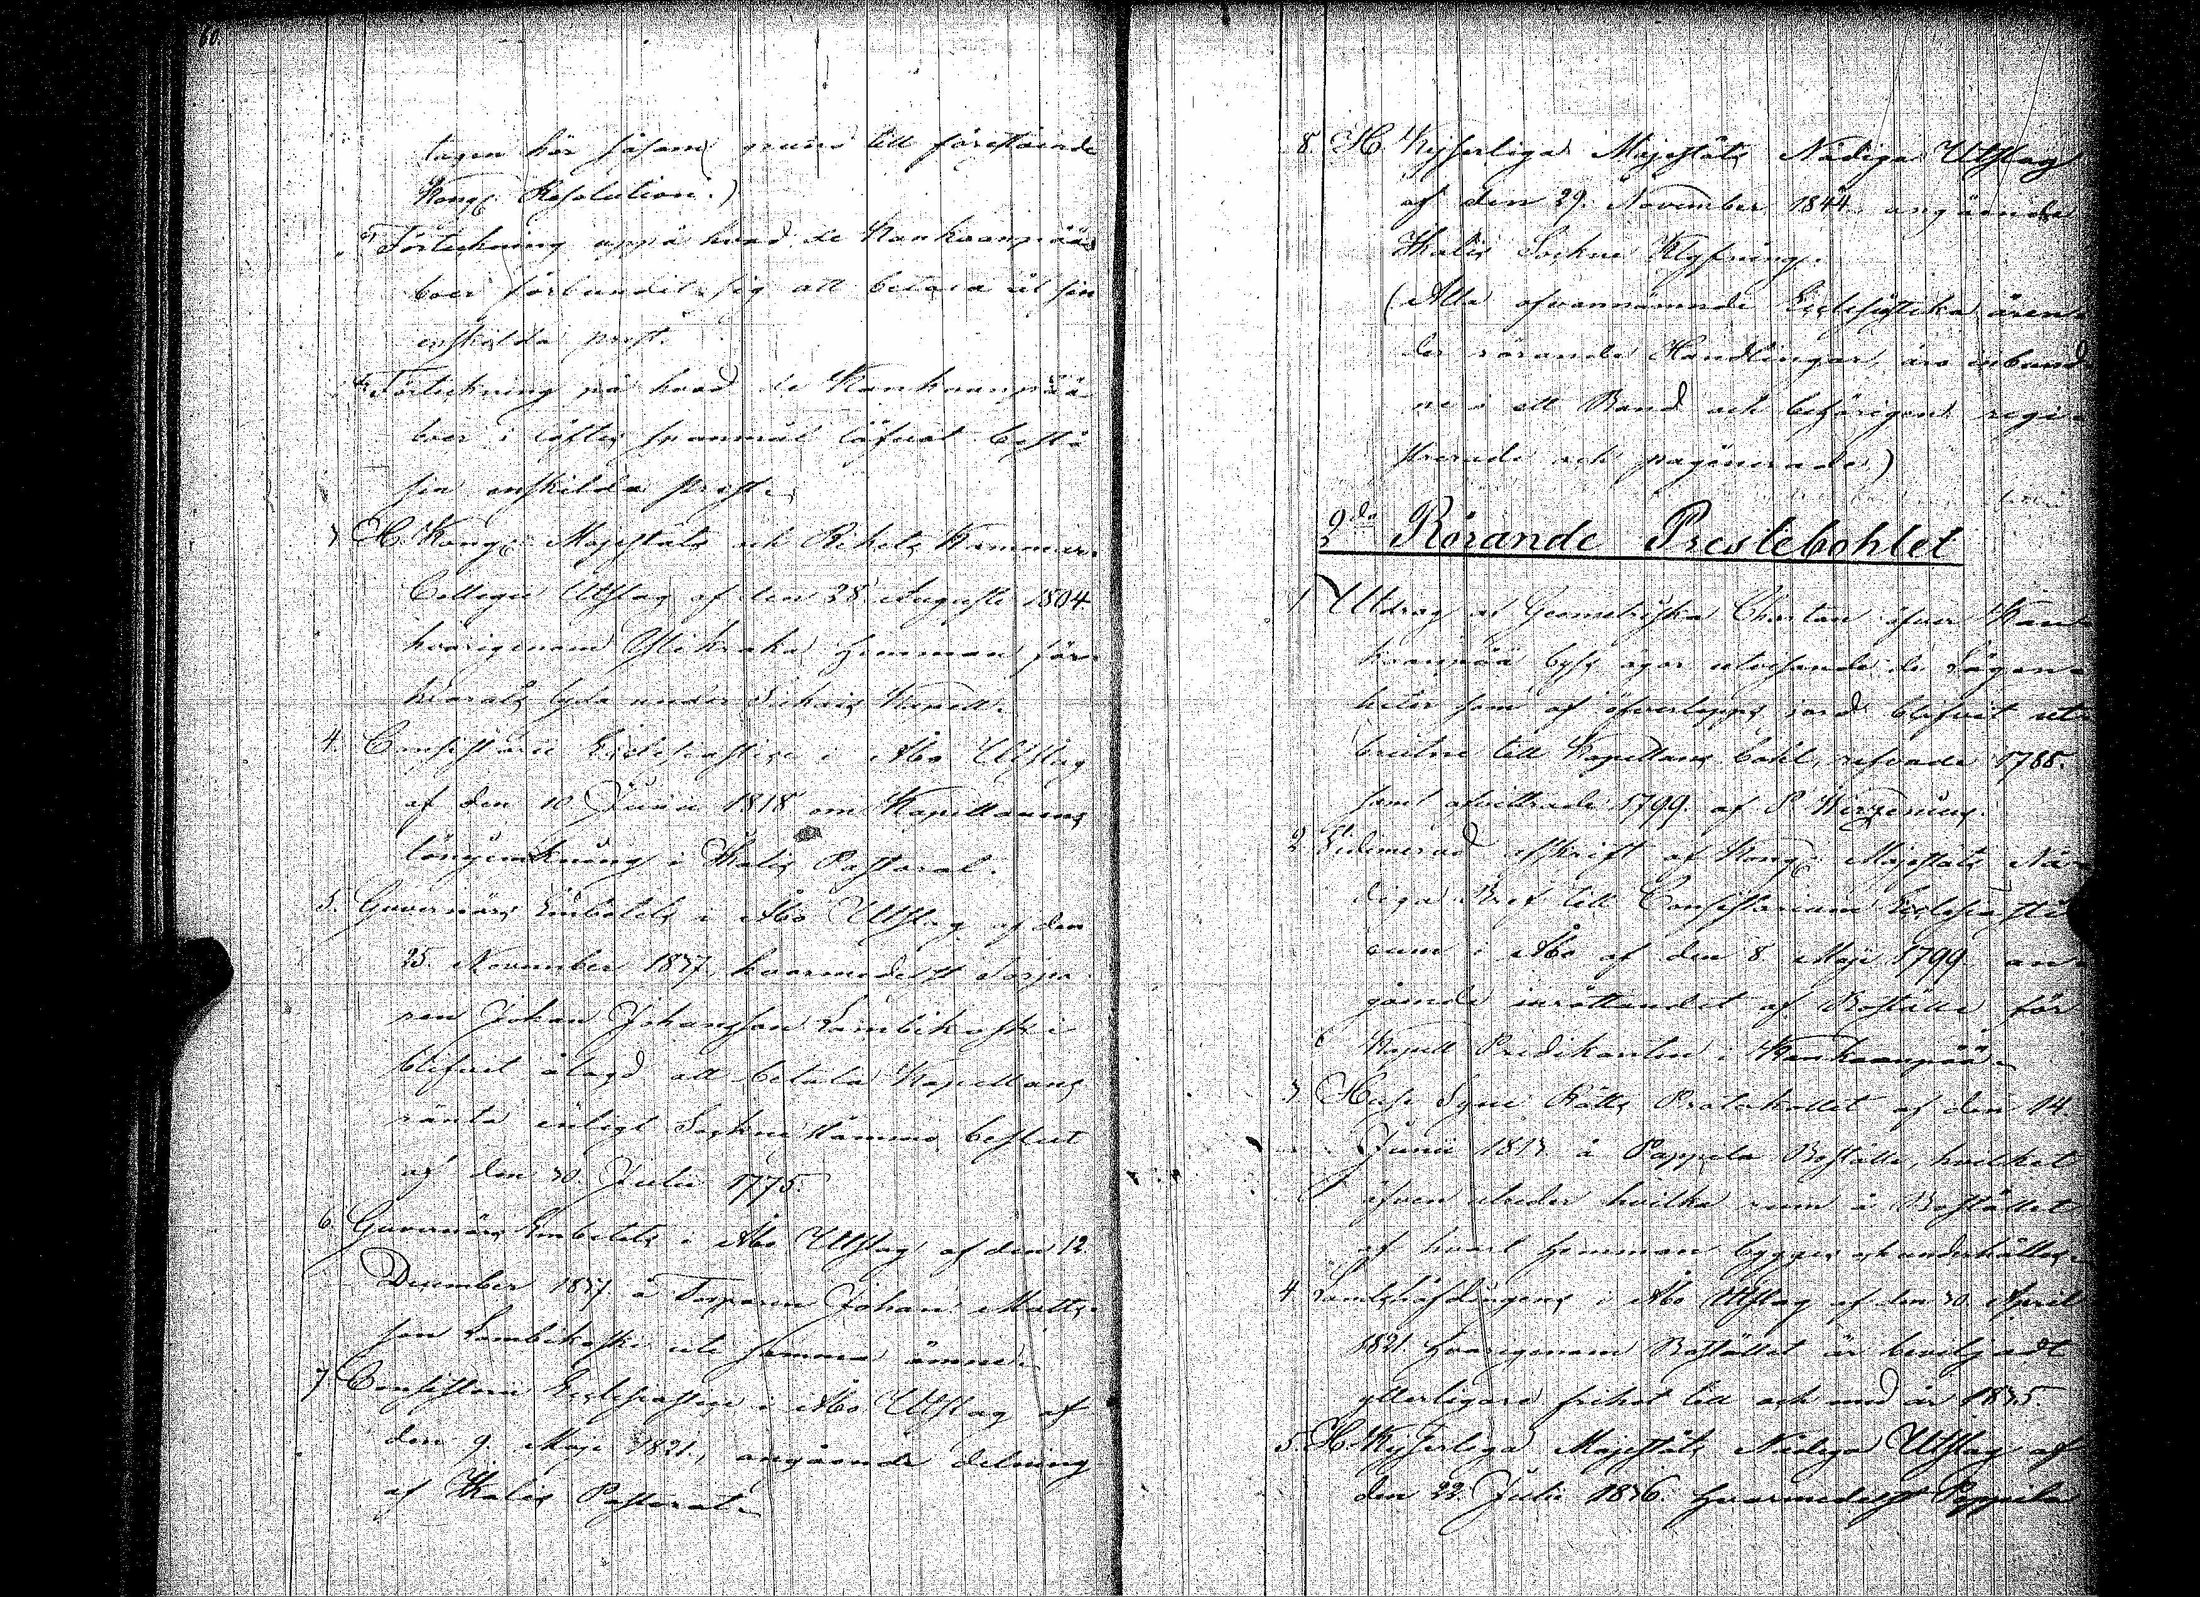 60.
tagen här såsom grund till föreståænde
Kongl. Resolution.)
c, Förteckning uppå hvad de Kankaanpää
boer förbundit sig att betala åt sin
enskilda prest.
d, Förteckning på hvad de Kankaanpää
boer i löftes spannmål löfvat bestå
sin enskilda prest.
3 H. Kongl. Majestäts och Rikets Kammar
Collegii Utslag af den 28 Augusti 1804
hvarigenom hemman för
klarats lyda under Kapell.
4. Consistorii Ecclesiastici i Åbo Utslag
af den 10 Junii 1818 om Kapellanens
löningenkning i Ikalis Pastorat.
5. Guvernörs Embetets i Åbo Utslag af den
25. November 1837, hvarmedelst Torpa
ren Johan Johansson Lambikoski
blifvit ålagd att betala Kapellans
ränta enligt Sockne stämmo beslut
af den 30 Julii 1775.
6. Guvernörs Embetets i Åbo Utslag af den 12
December 1837 å Torparen Johan Matts
son Lambikoski uti samma ämne.
7 Consistorii Ecclesiastici i Åbo Utslag af
den 9. Maji 1821, angående delning
af Ikalis Pastorat.
8. H. Kejserliga Majestäts Nådiga Utslag
af den 29. November 1844 angående
Ikalis Sockne Klyfning.
(Alla ofvannämnde Ecclesiastika ären
der rörande Handlingar, äro inbund
ne i ett Band och behörigen regi
strerade och paginerade)
2do Rörande Prestebohlet
1 Utdrag af Geometriska Chartan öfver Kan
kaanpää bys ägor utvisande de Lägen
heter som af öfverlopps jord blifvit ut
brutne till Kapellans bohl, refvade 1788.
samt afvittrade 1799. af P. Wirzenius.
2 Vidimerad afskrift af Kongl. Majestäts Nå
diga Bref till Consistorium Ecclesiasti
cum i Åbo af den 8 Maji 1799 an
gående inrättandet af Boställe för
Kapell Predikanten i Kankaanpää.
3 Huse Syne Rätts Protokollet af den 14
Junii 1813 å Pappila Boställe, hvilket
äfven utreder hvilka rum å Bostället
af hvart hemman bygges och underhålles.
4 Landshöfdingens i Åbo Utslag af den 30 April
1821. hvarigenom Bostället är beviljadt
ytterligare frihet till och med år 1835.
5. H. Kejserliga Majestäts Nådiga Utslag af
den 22. Julii 1836. hvarmedelst Pappila